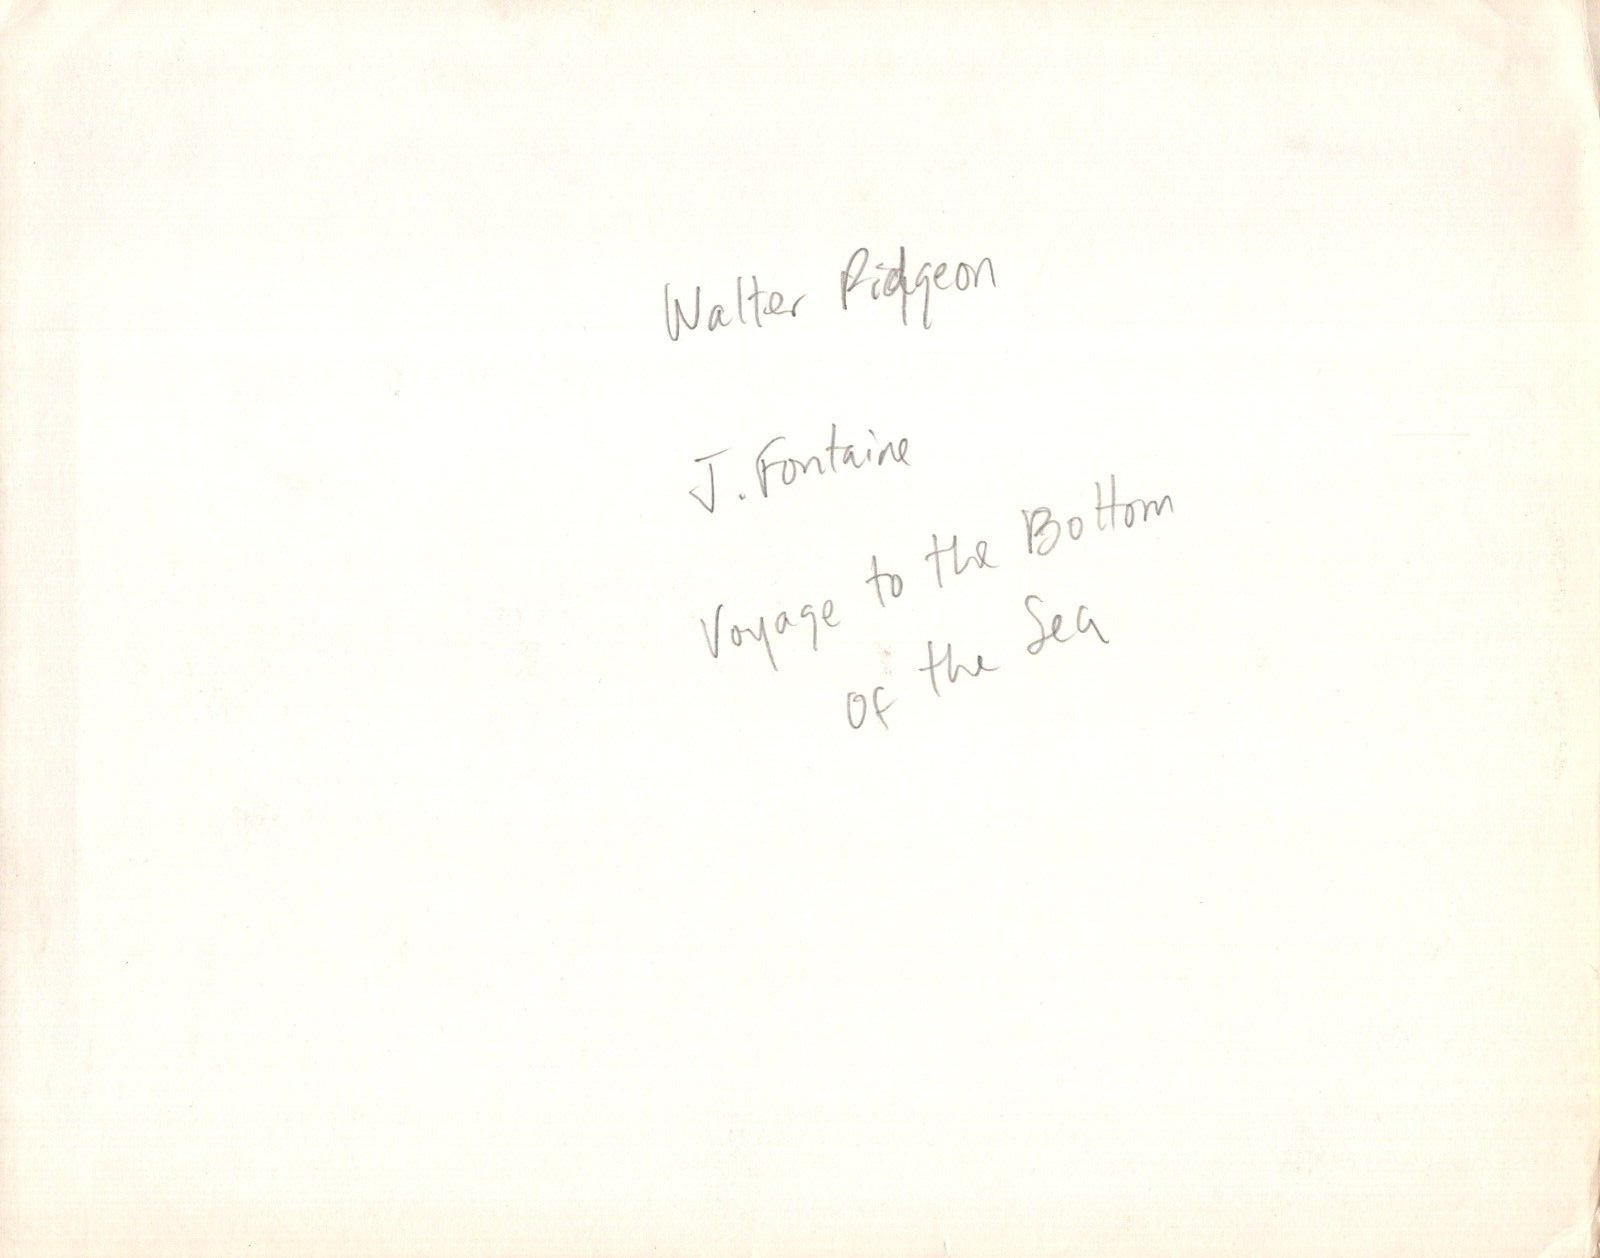 Walter Pidgeon
J. Fontaine
Voyage to the Bottom
of the Sea